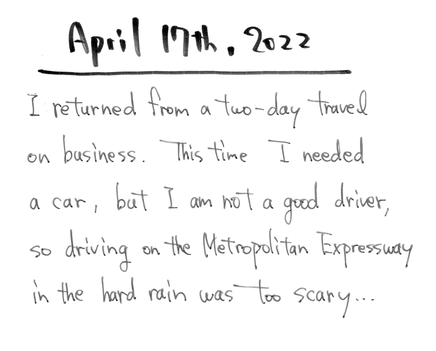 April 17th, 2022
I returned from a two-day travel
on business. This time I needed
a car, but I am not a good driver,
so driving on the Metropolitan Expressway
in the hard rain was too scary...